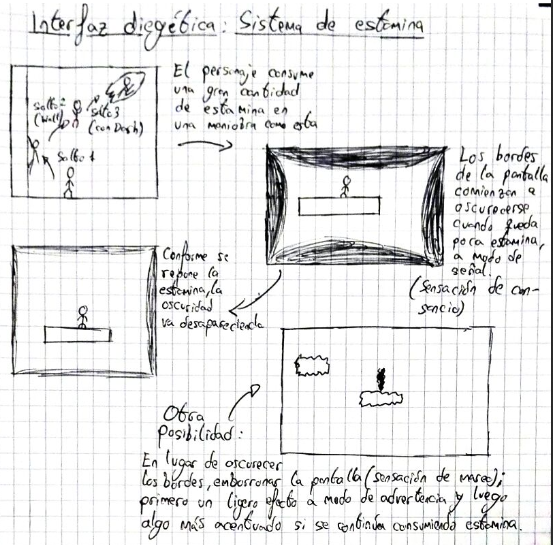 Interfaz diegética: Sistema de estamina
El personaje consume
una gran cantidad
de estamina en
una maniobra como esta
Salto 2
(Wall)
Salto 3
(con Dash)
Salto 1
Los bordes
de la pantalla
comienzan a
oscurecerse
cuando queda
poca estamina,
a modo de
señal.
(sensación de can-
sancio)
Conforme se
repone la
estamina, la
oscuridad
va desapareciendo
Otra
posibilidad:
En lugar de oscurecer
los bordes, emborronar la pantalla (sensación de mareo);
primero un ligero efecto a modo de advertencia y luego
algo más acentuado si se continúa consumiendo estamina.